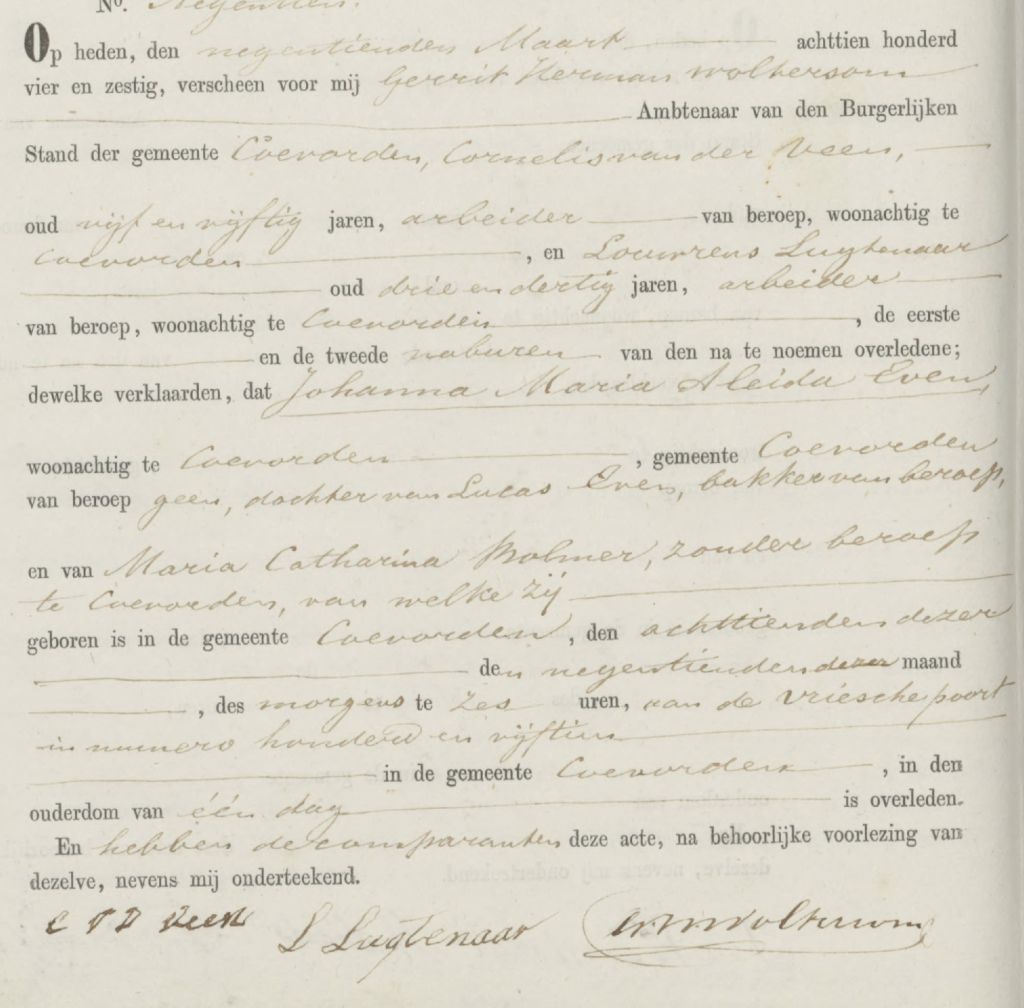 No. Negentien.
Op heden, den negentienden Maart achttien honderd
vier en zestig, verscheen voor mij Gerrit Herman Woltersom
Ambtenaar van den Burgerlijken
Stand der gemeente Coevorden, Cornelis van der Veen,
oud vijf en vijftig jaren, arbeider van beroep, woonachtig te
Coevorden, en Louwrens Lugtenaar
oud drie en dertig jaren, arbeider
van beroep, woonachtig te Coevorden, de eerste
en de tweede naburen van den na te noemen overledene;
dewelke verklaarden, dat Johanna Maria Aleida Even,
woonachtig te Coevorden, gemeente Coevorden
van beroep geen, dochter van Lucas Even, bakker van beroep,
en van Maria Catharina Bolmer, zonder beroep
te Coevorden, van welke zij
geboren is in de gemeente Coevorden, den achttienden dezer
den negentienden dezer maand
, des morgens te zes uren, aan de Vriesche poort
in numero honderd en vijftien
in de gemeente Coevorden, in den
ouderdom van één dag is overleden.
En hebben de comparanten deze acte, na behoorlijke voorlezing van
dezelve, nevens mij onderteekend.
C V D Veen L Lugtenaar GHWoltersom